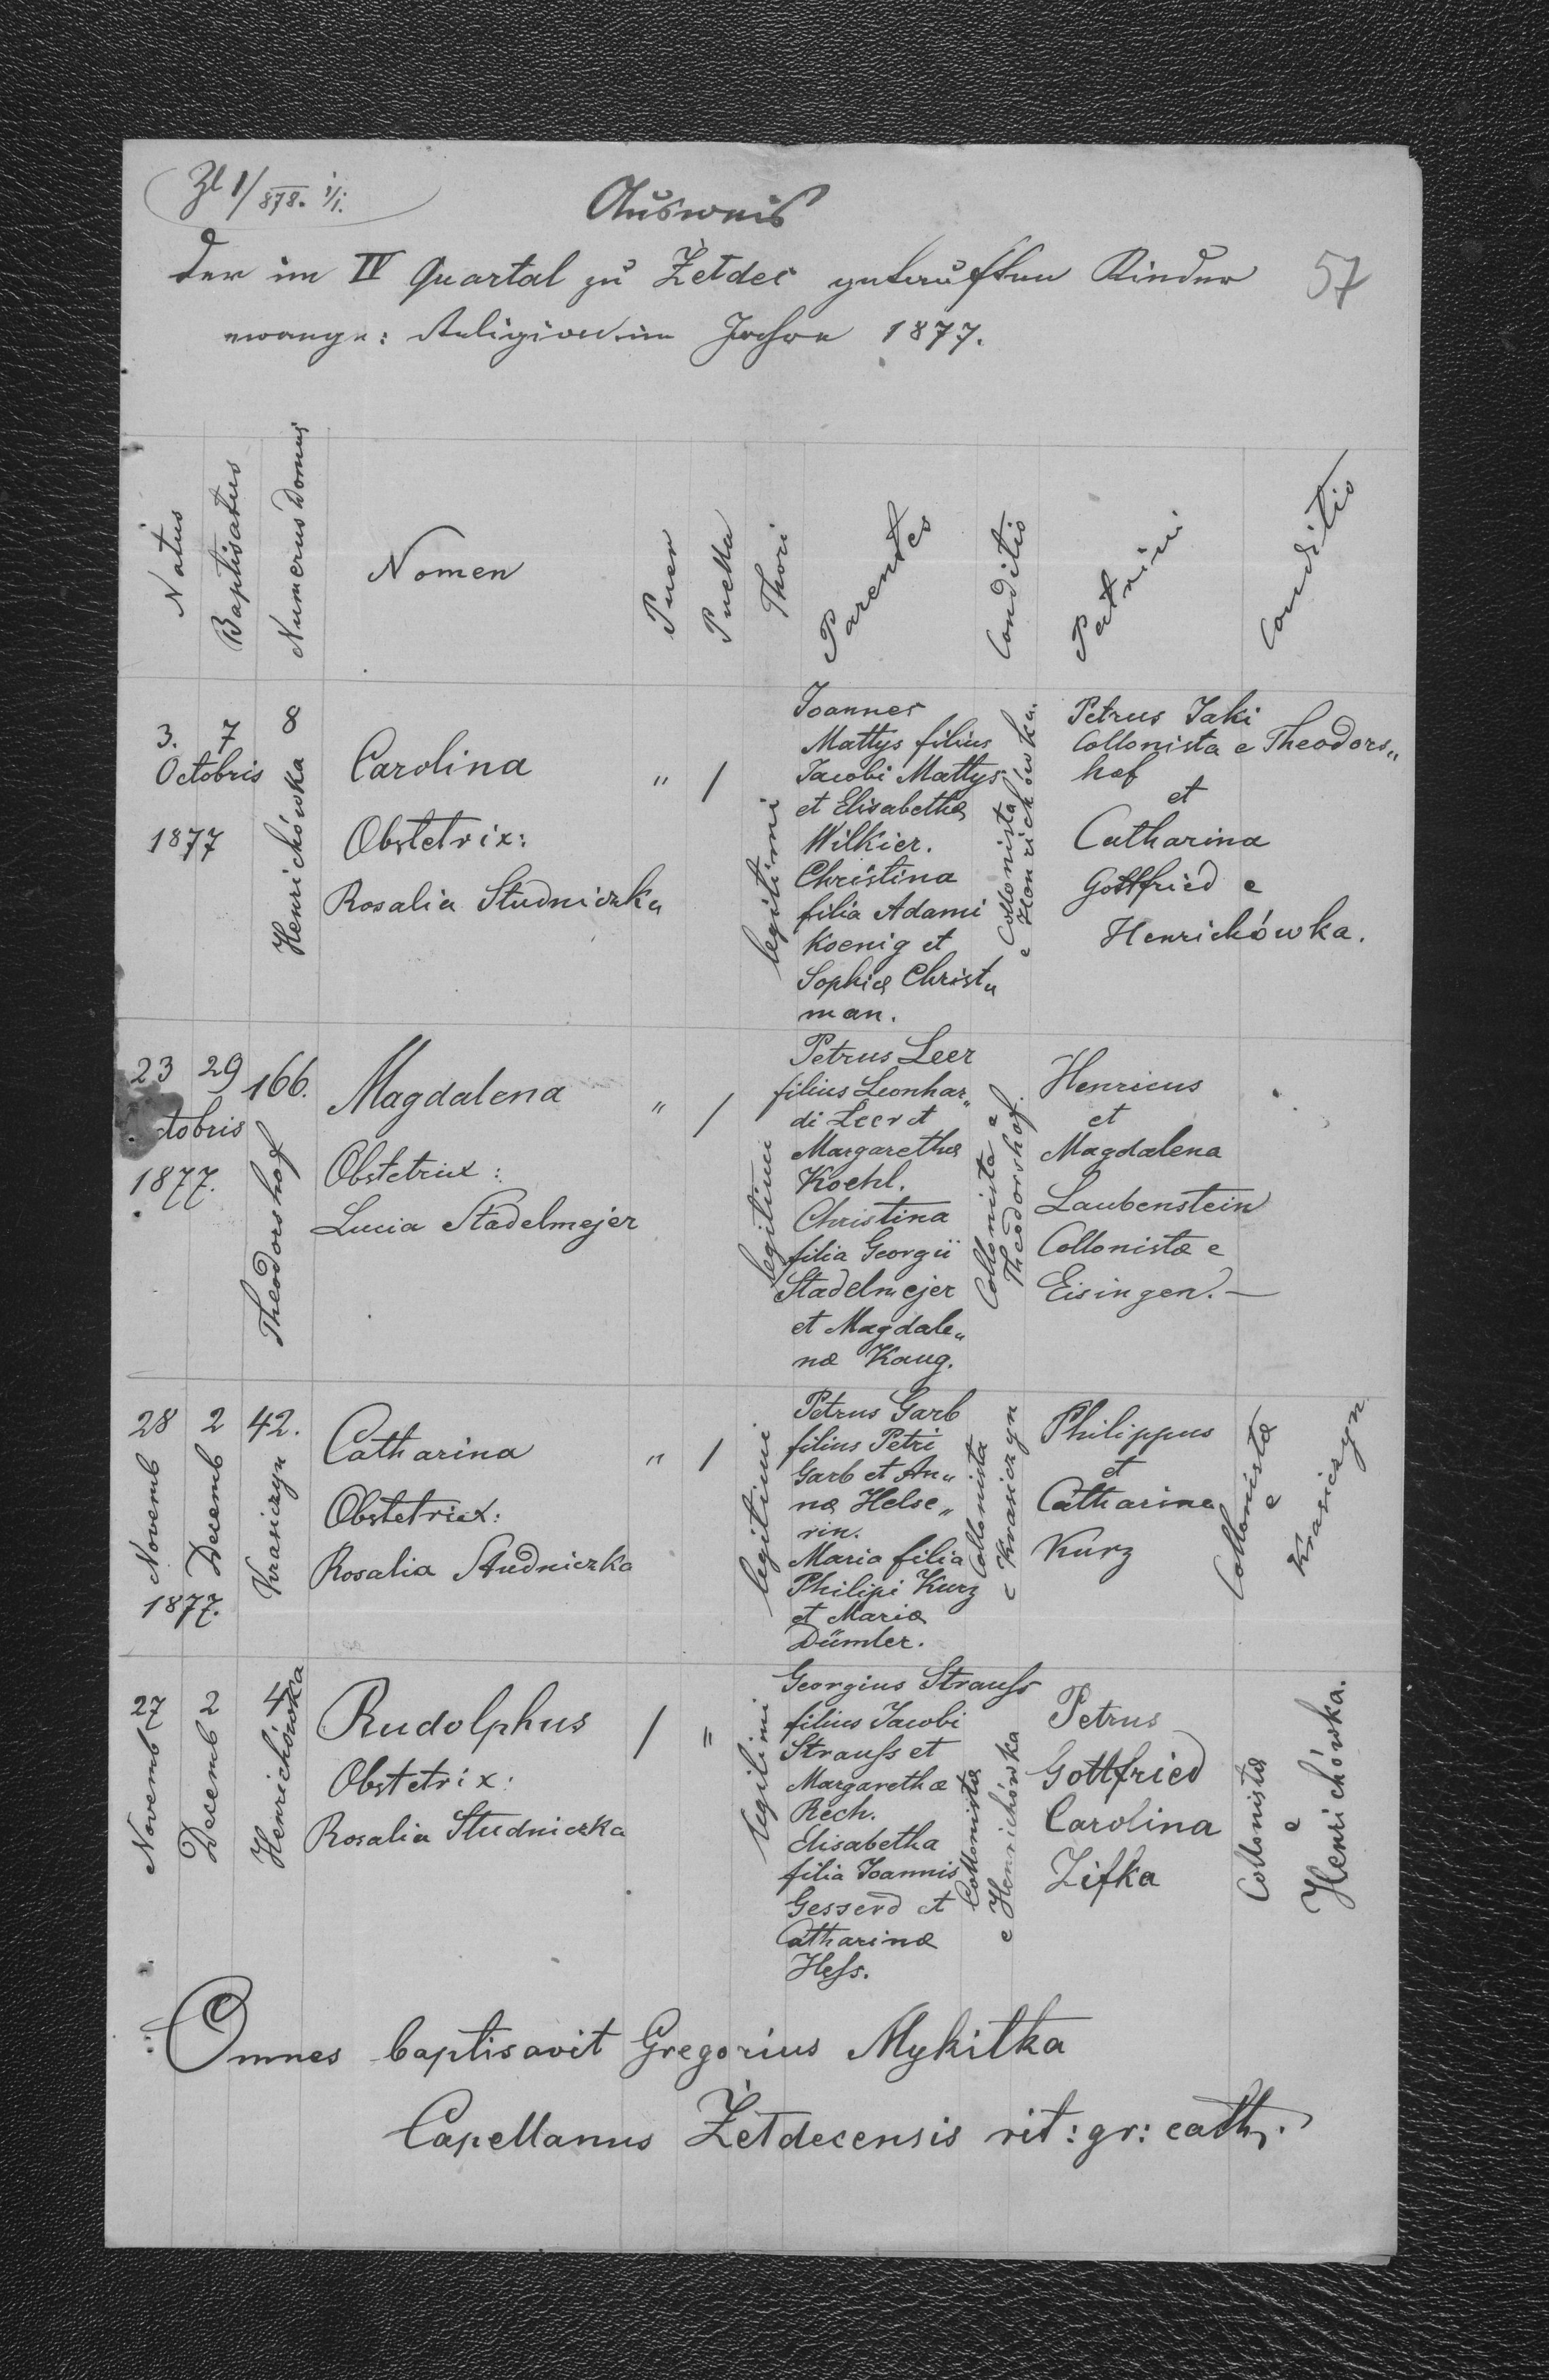 Zl 1/878. 1/1.
Ausweis
der im IV Quartal zu Żełdec getauften Kinder
evang: Religion im Jahre 1877.
57
Natus
Baptisatus
Numerus Domus
Nomen
Puer
Puella
Thori
Parentes
Conditio
Patrini
Conditio
3. 7
Octobris
1877
Henrichówka 8
Carolina
Obstetrix:
Rosalia Studniczka
" /
legitimi
Joannes
Mattys filius
Jacobi Mattys
et Elisabethæ
Wilkier.
Christina
filia Adami
Koenig et
Sophiæ Christ„
man.
Collonista
e Henrichówka.
Petrus Jaki
Collonista e Theodors„
hof
et
Catharina
Gottfried e
Henrichówka.
23 29
ctobris
1877.
166.
Theodorshof
Magdalena
Obstetrix:
Lucia Stadelmejer
" /
legitimi
Petrus Leer
filius Leonhar„
di Leer et
Margarethæ
Koehl.
Christina
filia Georgii
Stadelmejer
et Magdale„
næ Kaug.
Collonista e
Theodorshof.
Henricus
et
Magdalena
Laubenstein
Collonistæ e
Eisingen.—
28 Novemb
2 Decemb
1877.
42.
Krasiczyn
Catharina
Obstetrix:
Rosalia Studniczka
" /
legitimi
Petrus Garb
filius Petri
Garb et An„
næ Helse„
rin.
Maria filia
Philipi Kurz
et Mariæ
Dümler.
Collonista
e Krasiczyn
Philippus
et
Catharina
Kurz
Collonistæ
e
Krasiczyn
27 Novemb
2 Decemb
4
Henrichówka
Rudolphus
Obstetrix:
Rosalia Studniczka
/ =
legitimi
Georgius Strauſs
filius Jacobi
Strauſs et
Margarethæ
Rech.
Elisabetha
filia Joannis
Gesserd et
Catharinæ
Heſs.
Collonistæ
e Henrichówka
Petrus
Gottfried
Carolina
Zifka
Collonistæ
e
Henrichówka.
Omnes baptisavit Gregorius Mykitka
Capellanus Żełdecensis rit: gr: cath.